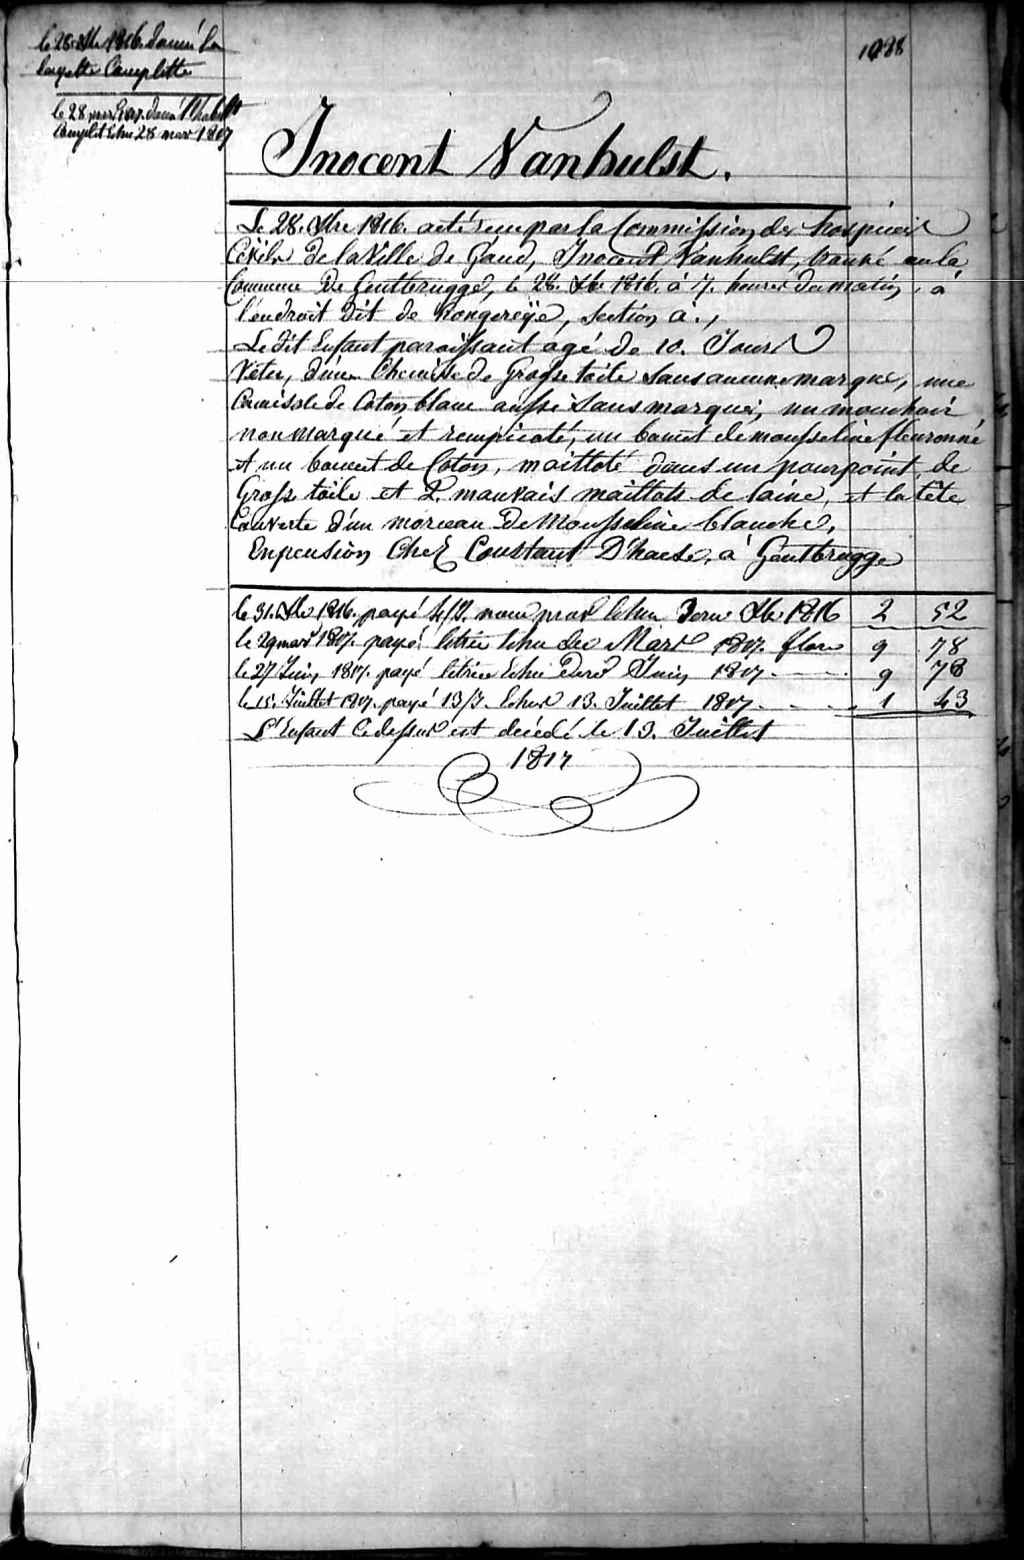 le 28 Xbre 1816. donné la
layette Complette
le 28 mars 1817. donné l'habillt
Complet Echu 28 mars 1817
1938
Inocent Vanhulst.
Le 28. Xbre 1816. a été reçu par la Commission des hospices
Civils de la Ville de Gand, Inocent Vanhulst, trouvé en la
Commune De Gentbrugge, le 28. Xbre 1816. à 7. heures du matin, à
l'endroit Dit de hongereÿe, Section a.,
Le dit Enfant paraissant agé de 10. Jours
Vetu, d'une Chemise de Grosse toile Sans aucune marque, une
Camisole de Coton blanc aussi Sans marque, un mouchoir
non marqué et rempiecté, un bonnet de mousseline fleuronné
et un bonnet de Coton, mailloté dans un pourpoint de
Grosse toile et 2. mauvais maillots de laine, et la tête
Couverte d'un morceau De Mousseline blanche.
En pension Chez Constant D'haese, à Gentbrugge
le 31. Xbre 1816. payé 4/J. nourr pnt Echu 3 Xbre 1816 2 52
le 29 mars 1817. payé letrim Echu der Mars 1817. flors 9 78
le 27 Juin 1817. payé letrim Echu Dero Juin 1817 9 78
le 15. Juillet 1817. payé 13/J. Echus 13. Juillet 1817 1 43
L'Enfant Ci dessus est décédé le 13. Juillet
1817